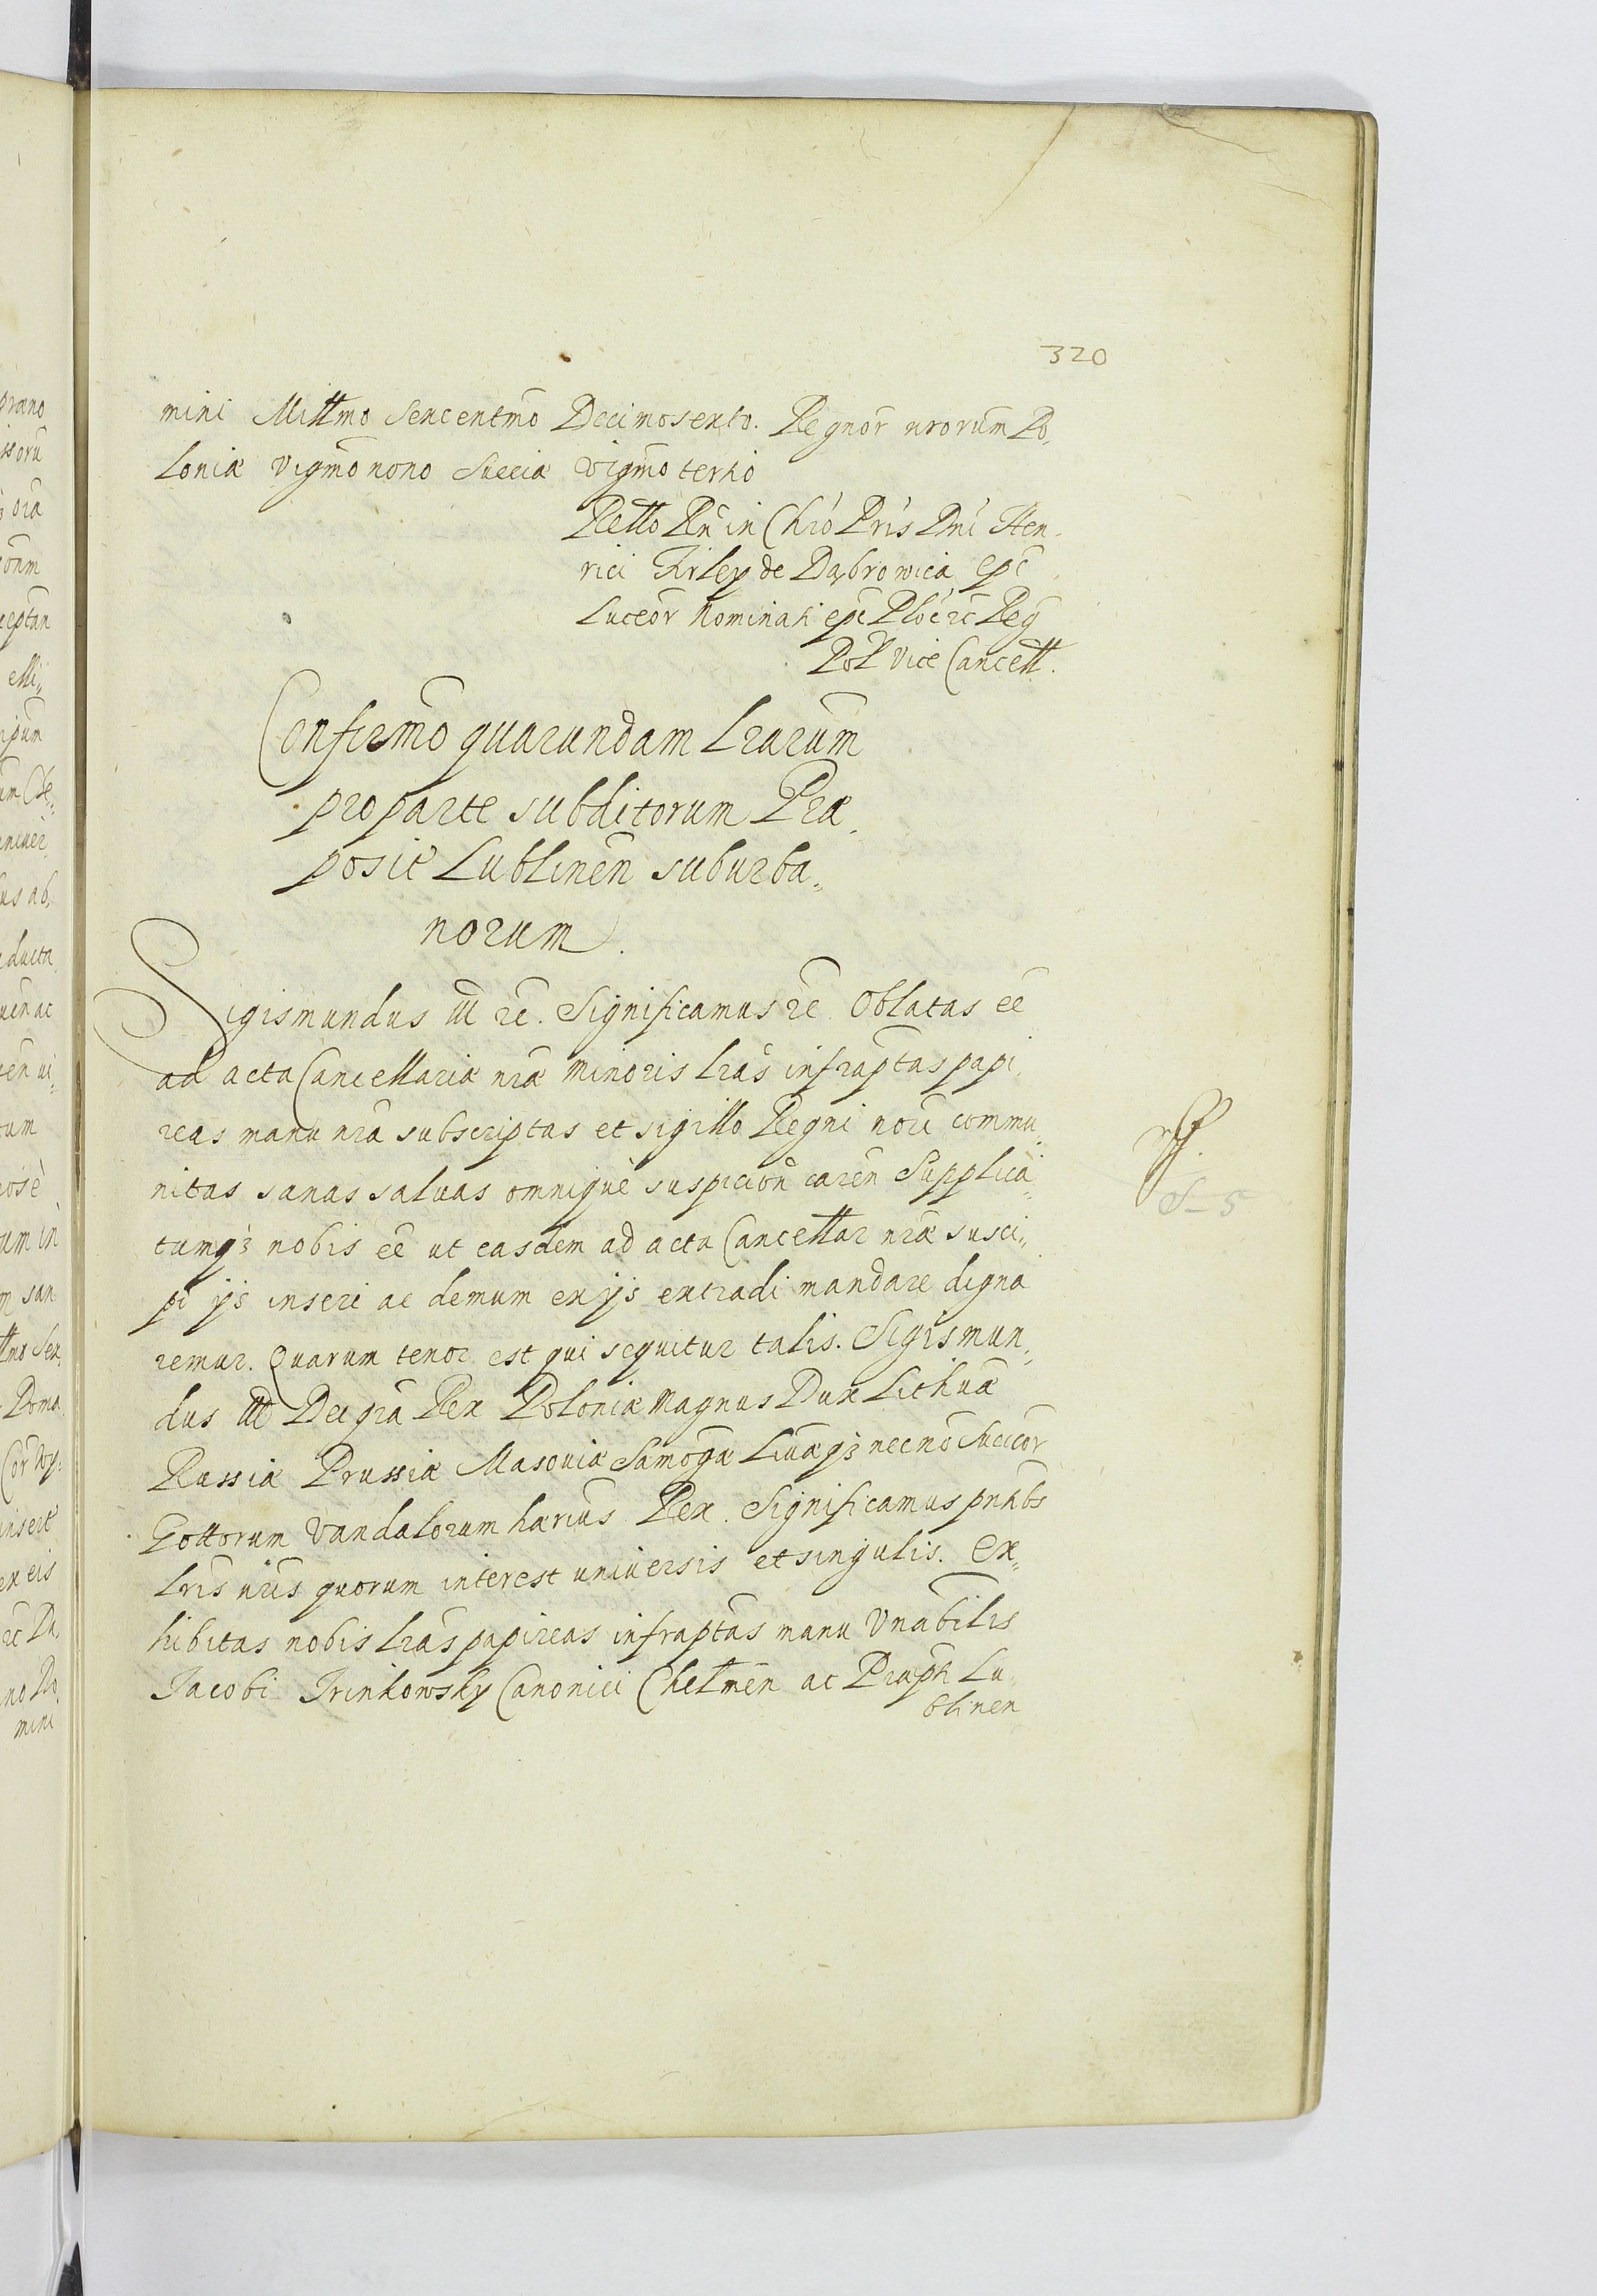 320
mini Millmo Sexcentmo Decimosexto. Regnor nrorum Po„
loniæ vigmo nono Sueciæ vigmo tertio
Rello Rn in Chro Pris Dni Hen„
rici Firley de Dąbrowica epc
Luceor Nominati epc Ploc rc Reg
Pol Vice Cancell.
Confirmo quarundam Lrarum
pro parte subditorum Præ„
posit Lublinen suburba„
norum.
Sigismundus III rc. Significamus rc. Oblatas ee
ad acta Cancellariæ nræ minoris lras infraptas papi„
reas manu nra subscriptas et sigillo Regni nori commu„
nitas sanas saluas omnique suspicion caren Supplica„
tumq3 nobis ee ut easdem ad acta Cancellar nræ susci„
pi ijs inseri ac demum ex ijs extradi mandare digna
remur. Quarum tenor est qui sequitur talis. Sigismun„
dus III Dei gra Rex Poloniæ Magnus Dux Lithuæ
Russiæ Prussiæ Masouiæ Samogæ Liuæq3 necno Suecor
Gottorum Vandalorum hærius Rex. Significamus pntbs
lris nris quorum interest uniuersis et singulis. Ex„
hibitas nobis lras papireas infraptas manu Vnabilis
Jacobi Trinkowsky Canonici Chelmen ac Præpti Lu„
blinen
S–5
præno
issoru
ora
onm
ceptan
elli„
ipum
um De„
niuer
us ab„
ducta
uen ac
ten ui„
tum
nose
um in
m san
llmo Sex„
Poma
Cor Wy„
insert
ex eis
rc Da„
no Do
mini